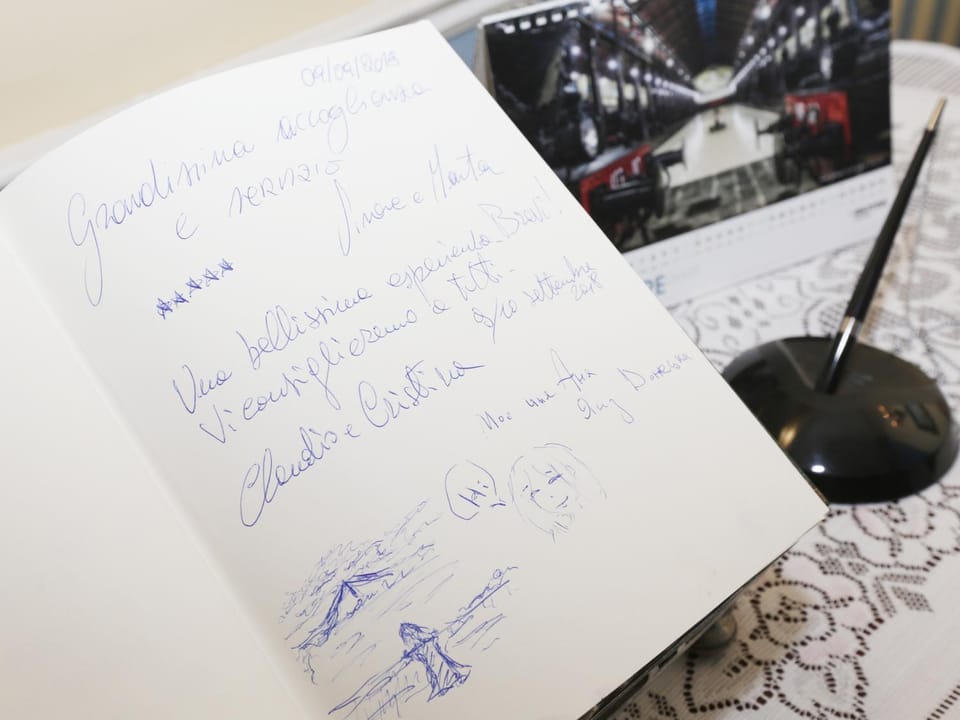 09/09/2018
Grandissima accoglienza
e servizio
e Marta
Una bellissima esperienza. Bravi!
Vi consiglieremo a tutti -
9/10 settembre
2018
Claudio e Cristina
Мое имя